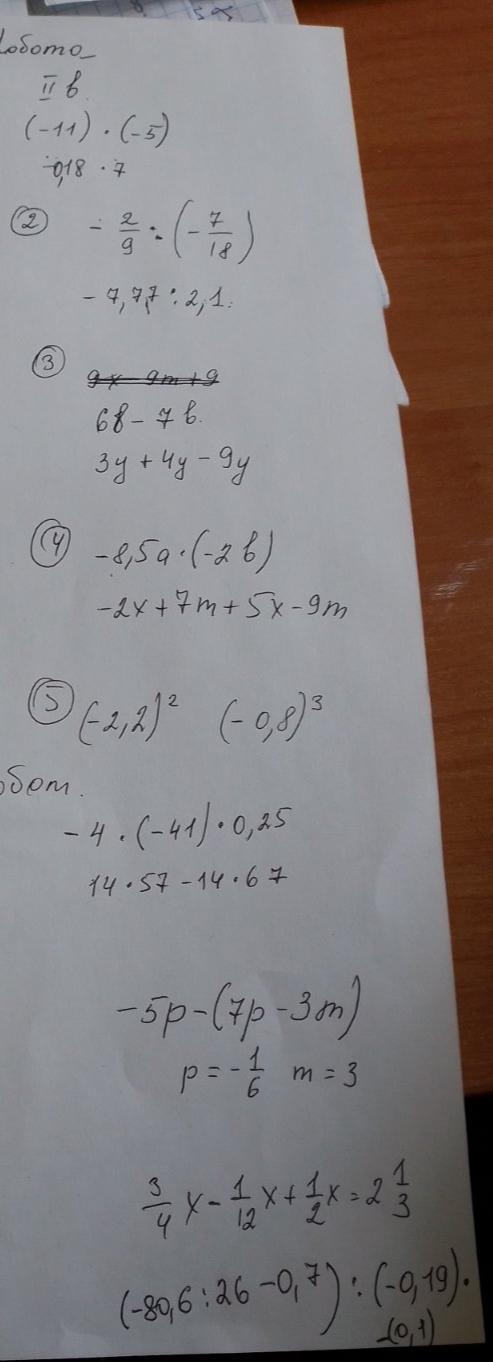 Робота
II в.
(-11) · (-5)
-0,18 · 7
② - 2/9 : (- 7/18)
- 7,77 : 2,1.
③ 9x - 9m + 9
6в - 7в.
3y + 4y - 9y
④ -8,5a · (-2в)
-2x + 7m + 5x - 9m
⑤ (-2,2)² (-0,8)³
обот.
-4 · (-41) · 0,25
14 · 57 - 14 · 67
-5p - (7p - 3m)
p = - 1/6 m = 3
3/4 x - 1/12 x + 1/2 x = 2 1/3
(-80,6 : 26 - 0,7) : (-0,19) ·
-(0,1)